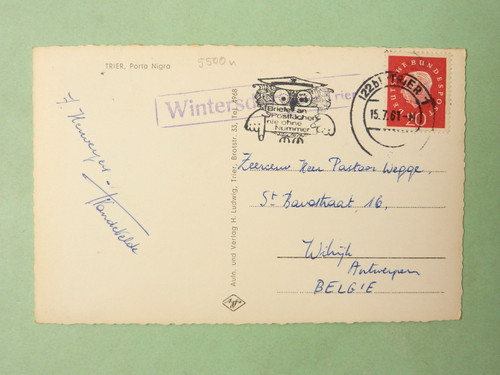 TRIER, Porta Nigra
5500n
Winters
Trier
Briefe an
Postfächer
nie ohne
Nummer
(22b) TRIER 1
15.7.61
DEUTSCHE BUNDESPOST
20
Aufn. und Verlag H. Ludwig, Trier, Brotstr. 33, Tel. 3968
Vandevelde
Zeereerw Heer Pastoor Wegge.
St Bavostraat 16.
Wilrijk
Antwerpen
BELGIE